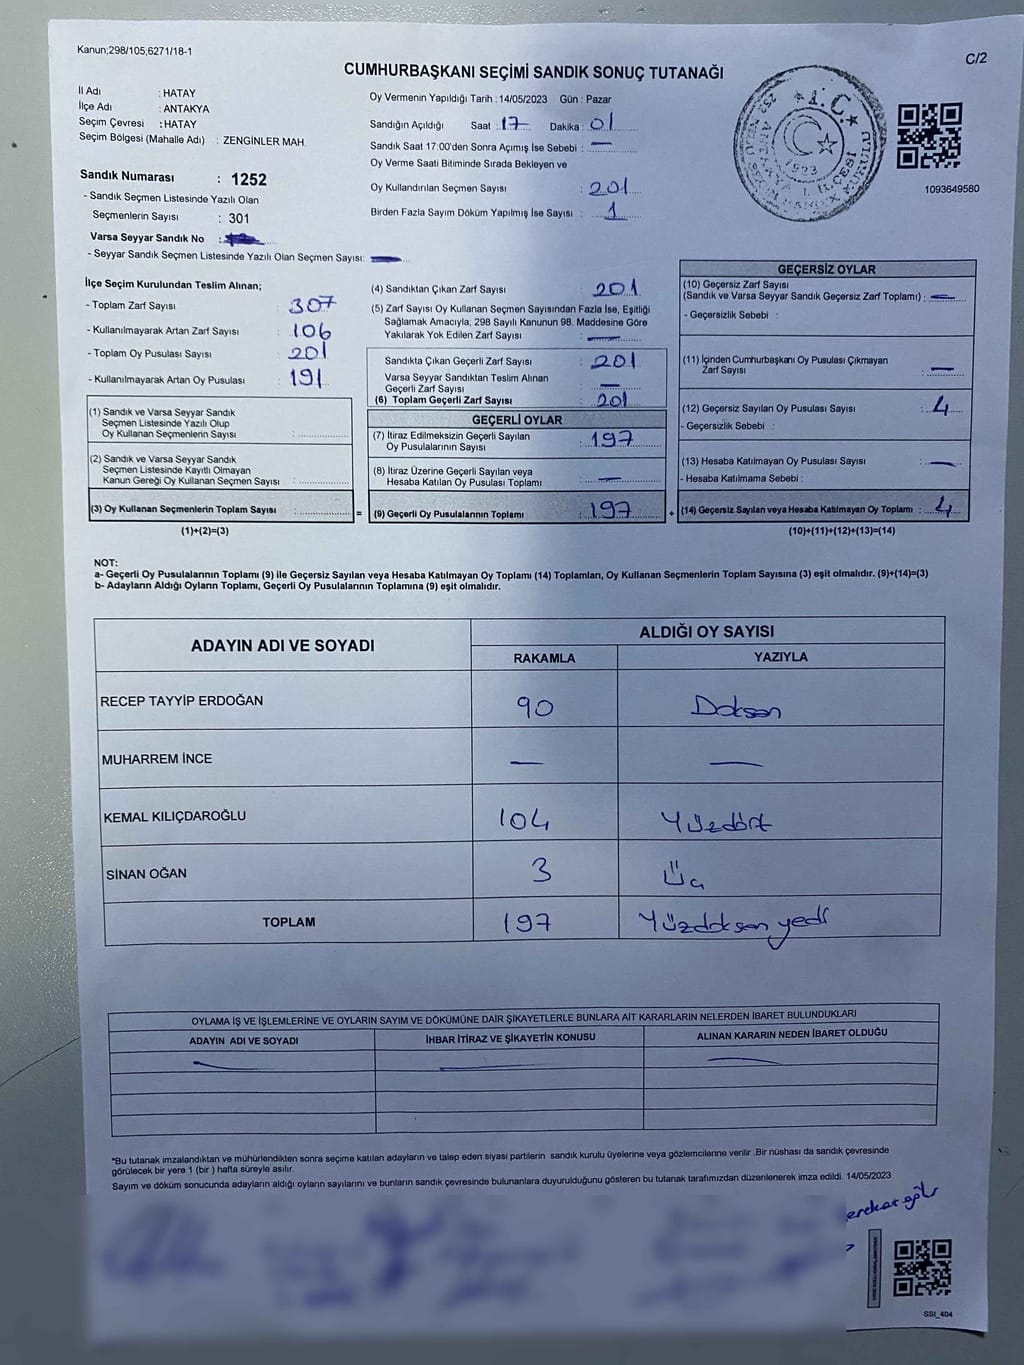 Kanun;298/105,6271/18-1
C/2
CUMHURBAŞKANI SEÇİMİ SANDIK SONUÇ TUTANAĞI
İl Adı : HATAY
İlçe Adı : ANTAKYA
Seçim Çevresi : HATAY
Seçim Bölgesi (Mahalle Adı) : ZENGİNLER MAH.
Sandık Numarası : 1252
- Sandık Seçmen Listesinde Yazılı Olan
Seçmenlerin Sayısı : 301
Varsa Seyyar Sandık No :
- Seyyar Sandık Seçmen Listesinde Yazılı Olan Seçmen Sayısı:
Oy Vermenin Yapıldığı Tarih : 14/05/2023 Gün : Pazar
Sandığın Açıldığı Saat : 17 Dakika : 01
Sandık Saat 17:00'den Sonra Açımış İse Sebebi : —
Oy Verme Saati Bitiminde Sırada Bekleyen ve
Oy Kullandırılan Seçmen Sayısı : 201
Birden Fazla Sayım Döküm Yapılmış İse Sayısı : 1
T.C.
1923
1093649580
İlçe Seçim Kurulundan Teslim Alınan;
- Toplam Zarf Sayısı : 307
- Kullanılmayarak Artan Zarf Sayısı : 106
- Toplam Oy Pusulası Sayısı : 201
- Kullanılmayarak Artan Oy Pusulası : 191
(1) Sandık ve Varsa Seyyar Sandık
Seçmen Listesinde Yazılı Olup
Oy Kullanan Seçmenlerin Sayısı :
(2) Sandık ve Varsa Seyyar Sandık
Seçmen Listesinde Kayıtlı Olmayan
Kanun Gereği Oy Kullanan Seçmen Sayısı :
(3) Oy Kullanan Seçmenlerin Toplam Sayısı :
(1)+(2)=(3)
=
(4) Sandıktan Çıkan Zarf Sayısı : 201
(5) Zarf Sayısı Oy Kullanan Seçmen Sayısından Fazla İse, Eşitliği
Sağlamak Amacıyla; 298 Sayılı Kanunun 98. Maddesine Göre
Yakılarak Yok Edilen Zarf Sayısı : —
Sandıkta Çıkan Geçerli Zarf Sayısı : 201
Varsa Seyyar Sandıktan Teslim Alınan
Geçerli Zarf Sayısı : —
(6) Toplam Geçerli Zarf Sayısı : 201
GEÇERLİ OYLAR
(7) İtiraz Edilmeksizin Geçerli Sayılan
Oy Pusulalarının Sayısı : 197
(8) İtiraz Üzerine Geçerli Sayılan veya
Hesaba Katılan Oy Pusulası Toplamı : —
(9) Geçerli Oy Pusulalarının Toplamı : 197
+
GEÇERSİZ OYLAR
(10) Geçersiz Zarf Sayısı
(Sandık ve Varsa Seyyar Sandık Geçersiz Zarf Toplamı) : —
- Geçersizlik Sebebi :
(11) İçinden Cumhurbaşkanı Oy Pusulası Çıkmayan
Zarf Sayısı : —
(12) Geçersiz Sayılan Oy Pusulası Sayısı : 4
- Geçersizlik Sebebi :
(13) Hesaba Katılmayan Oy Pusulası Sayısı : —
- Hesaba Katılmama Sebebi :
(14) Geçersiz Sayılan veya Hesaba Katılmayan Oy Toplamı : 4
(10)+(11)+(12)+(13)=(14)
NOT:
a- Geçerli Oy Pusulalarının Toplamı (9) ile Geçersiz Sayılan veya Hesaba Katılmayan Oy Toplamı (14) Toplamları, Oy Kullanan Seçmenlerin Toplam Sayısına (3) eşit olmalıdır. (9)+(14)=(3)
b- Adayların Aldığı Oyların Toplamı, Geçerli Oy Pusulalarının Toplamına (9) eşit olmalıdır.
ADAYIN ADI VE SOYADI ALDIĞI OY SAYISI
RAKAMLA YAZIYLA
RECEP TAYYİP ERDOĞAN 90 Doksan
MUHARREM İNCE — —
KEMAL KILIÇDAROĞLU 104 Yüzdört
SİNAN OĞAN 3 Üç
TOPLAM 197 Yüzdoksan yedi
OYLAMA İŞ VE İŞLEMLERİNE VE OYLARIN SAYIM VE DÖKÜMÜNE DAİR ŞİKAYETLERLE BUNLARA AİT KARARLARIN NELERDEN İBARET BULUNDUKLARI
ADAYIN ADI VE SOYADI İHBAR İTİRAZ VE ŞİKAYETİN KONUSU ALINAN KARARIN NEDEN İBARET OLDUĞU
— — —
*Bu tutanak imzalandıktan ve mühürlendikten sonra seçime katılan adayların ve talep eden siyasi partilerin sandık kurulu üyelerine veya gözlemcilerine verilir .Bir nüshası da sandık çevresinde
görülecek bir yere 1 (bir ) hafta süreyle asılır.
Sayım ve döküm sonucunda adayların aldığı oyların sayılarını ve bunların sandık çevresinde bulunanlara duyurulduğunu gösteren bu tutanak tarafımızdan düzenlenerek imza edildi. 14/05/2023
SSI_404